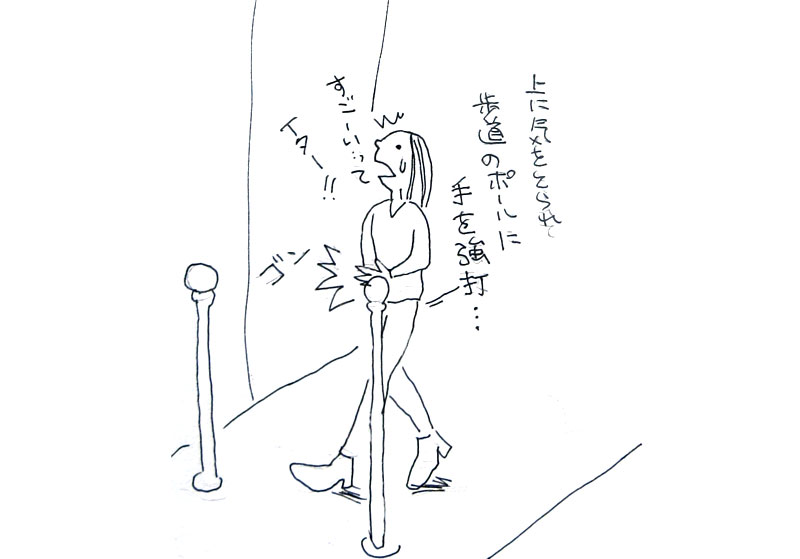 上に気をとられて
歩道のポールに
手を強打…
すごーいって
イター!!
ゴン